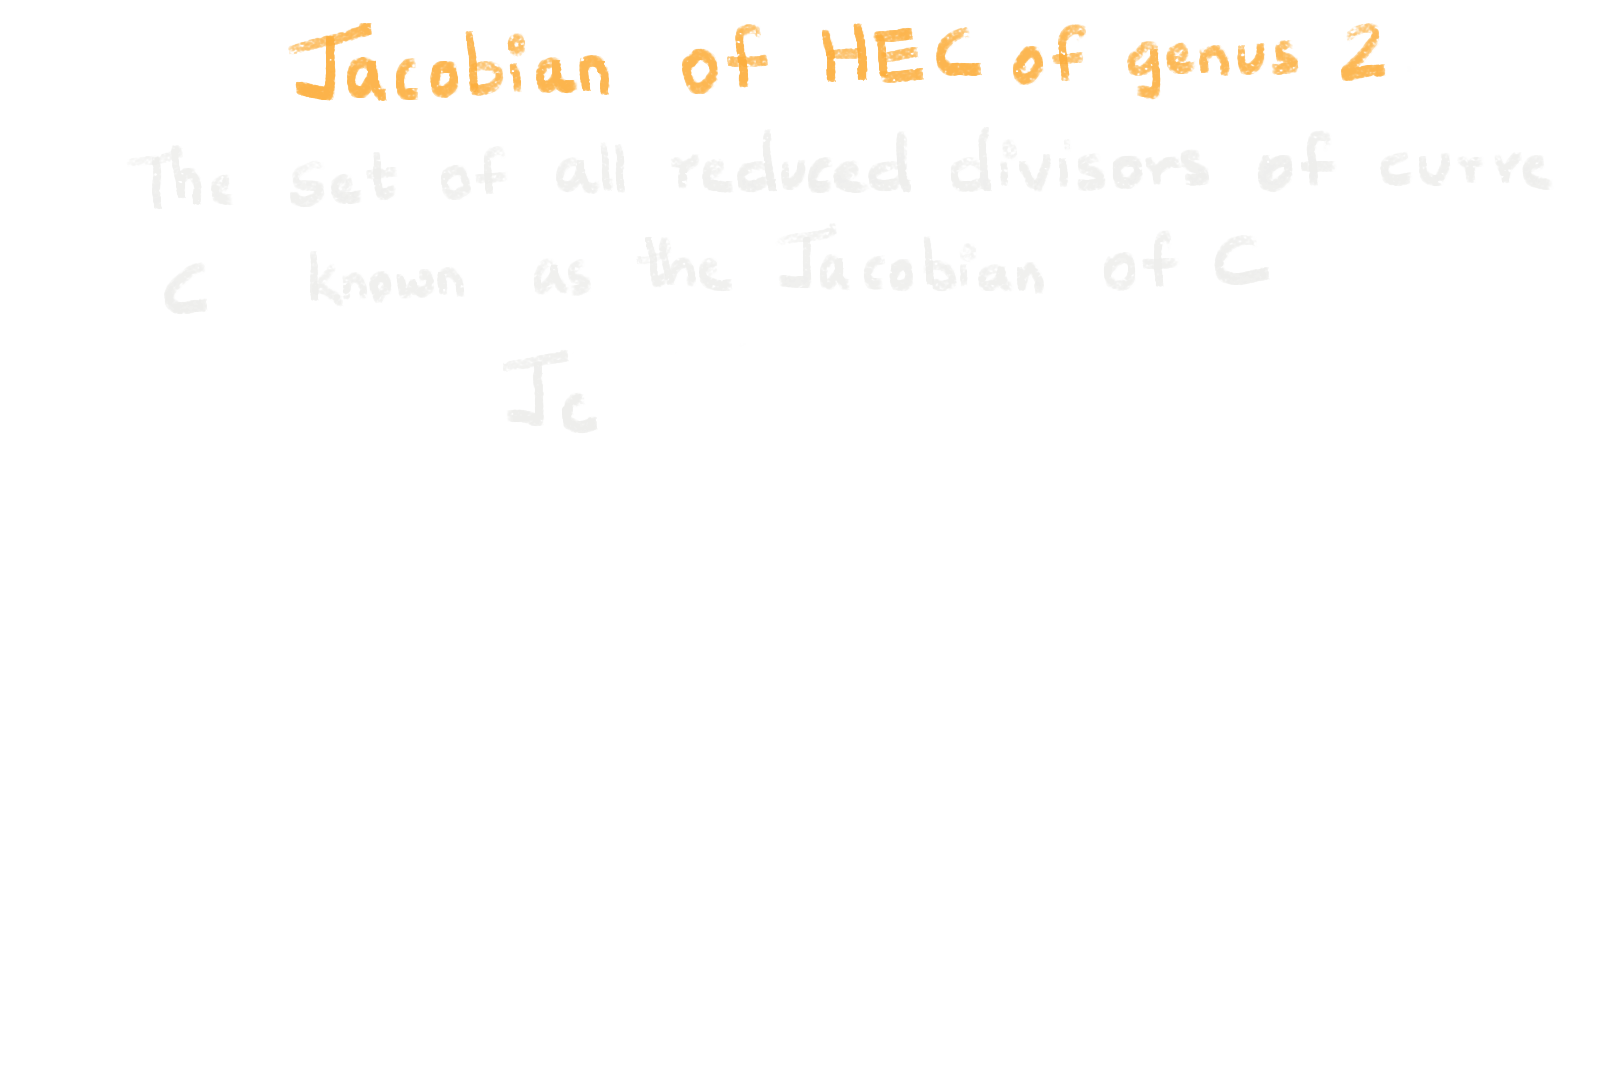 Jacobian of HEC of genus 2
The set of all reduced divisors of curve
C known as the Jacobian of C
Jc